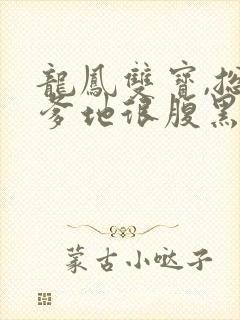 龍鳳雙寶,總
爹地很腹黑
蒙古小哒子